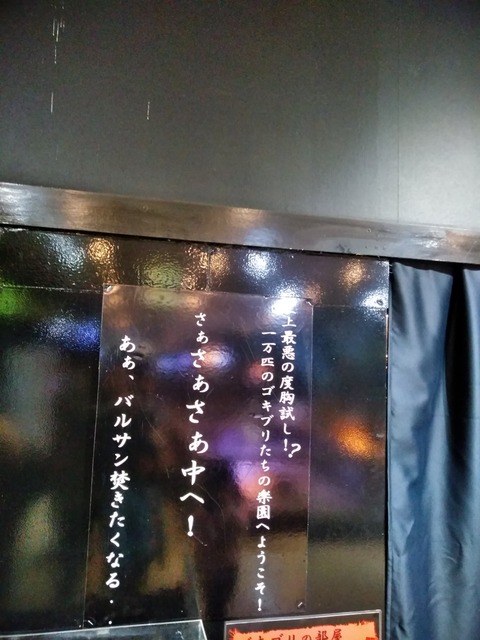 上最悪の度胸試し!?
一万匹のゴキブリたちの楽園へようこそ!
さぁさぁさぁ中へ!
あぁ、バルサン焚きたくなる..
ゴキブリの部屋